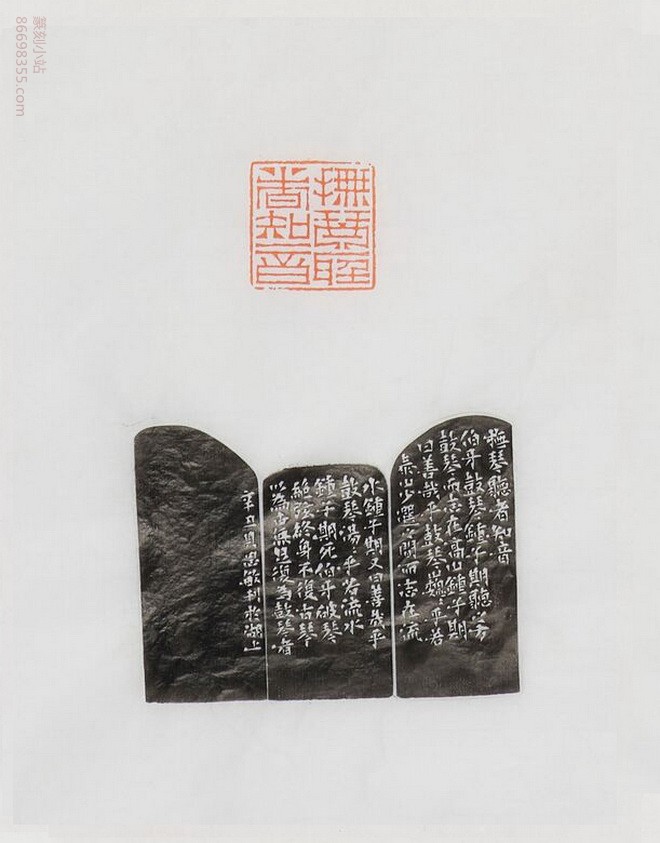 篆刻小站
86698355.com
撫琴聽
者知音
撫琴聽者知音
伯牙鼓琴鍾子期聽之方
鼓琴而志在高山鍾子期
曰善哉乎鼓琴巍〻乎若
泰山少選之間而志在流
水鍾子期又曰善哉乎
鼓琴湯〻乎若流水
鍾子期死伯牙破琴
絕弦終身不復古琴
以為世無足復為鼓琴者
辛丑思敏刊於湖上